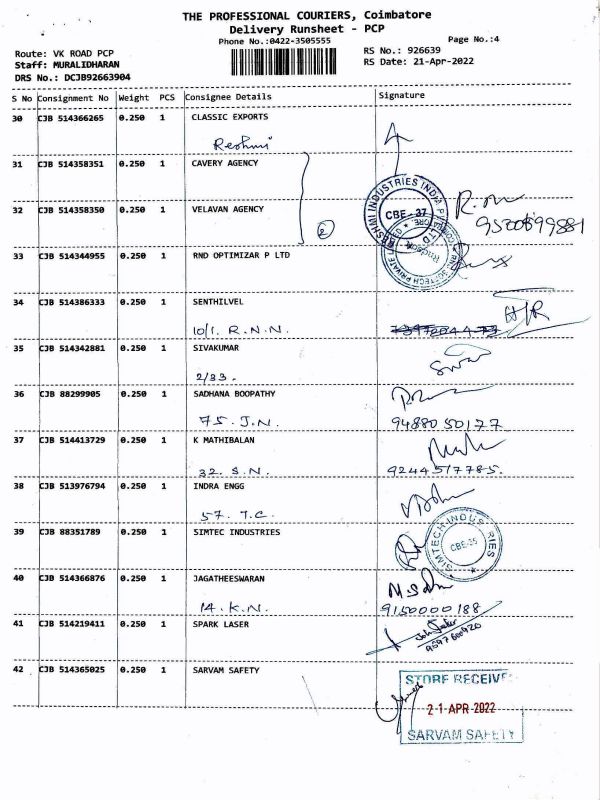 THE PROFESSIONAL COURIERS, Coimbatore
Delivery Runsheet - PCP
Phone No.:0422-3505555
Page No.:4
Route: VK ROAD PCP
RS No.: 926639
Staff: MURALIDHARAN
RS Date: 21-Apr-2022
DRS No.: DCJB92663904
S No Consignment No Weight PCS Consignee Details Signature
30 CJB 514366265 0.250 1 CLASSIC EXPORTS
Reshmi
31 CJB 514358351 0.250 1 CAVERY AGENCY
32 CJB 514358350 0.250 1 VELAVAN AGENCY
2
CBE-37
33 CJB 514344955 0.250 1 RND OPTIMIZAR P LTD
34 CJB 514386333 0.250 1 SENTHILVEL
10/1. R.N.N.
35 CJB 514342881 0.250 1 SIVAKUMAR
2/33.
36 CJB 88299905 0.250 1 SADHANA BOOPATHY
75. J.N. 9488050177
37 CJB 514413729 0.250 1 K MATHIBALAN
32. S.N. 9244517785.
38 CJB 513976794 0.250 1 INDRA ENGG
57. T.C.
39 CJB 88351789 0.250 1 SIMTEC INDUSTRIES
SIMTECH INDUSTRIES
CBE-35
40 CJB 514366876 0.250 1 JAGATHEESWARAN
14. K.N. 9150000188
41 CJB 514219411 0.250 1 SPARK LASER
42 CJB 514365025 0.250 1 SARVAM SAFETY
STORE RECEIVE
21 APR 2022
SARVAM SAFETY